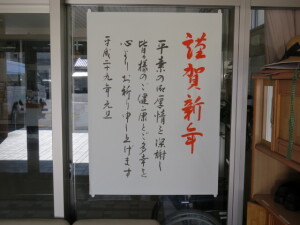 謹賀新年
平素の御厚情を深謝し
皆様のご健康とご多幸を
心よりお祈り申し上げます
平成二十九年元旦